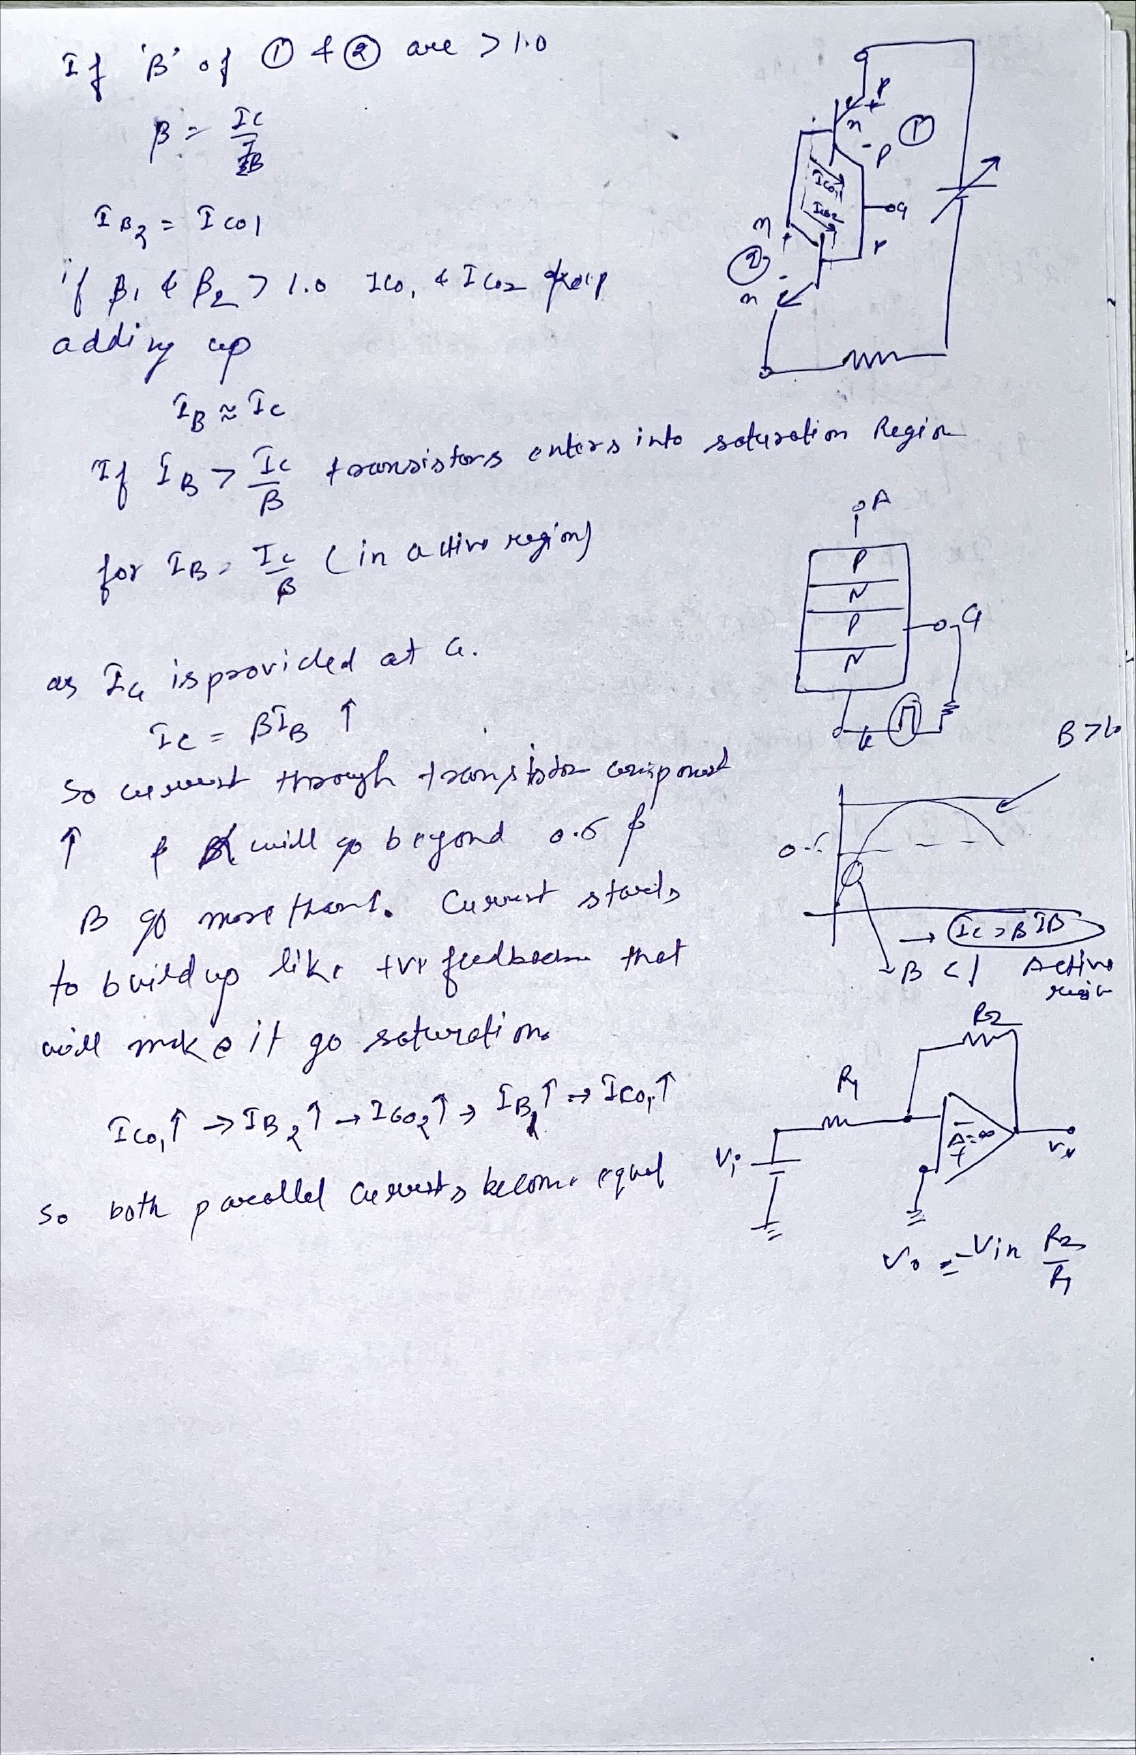 If 'β' of ① & ② are > 1.0
β = Ic / IB
IB2 = Ico1
if β1 & β2 > 1.0 Ico1 & Ico2
adding up
IB ≈ Ic
If IB > Ic/β transistors enters into saturation Region
for IB = Ic/β (in active region)
as IG is provided at G.
Ic = βIB ↑
So current through transistor component
↑ & will go beyond 0.6 &
B go more than 1. Current starts
to buildup like +ve feedback that
will make it go saturation
Ico1↑ → IB2↑ → Ico2↑ → IB1↑ → Ico1↑
so both parallel currents become equal
P
+
n
-
P
①
Ico1
Ico2
G
n
+
P
②
-
n
A
P
N
P
N
G
K
B>1.0
→ Ic = β IB
B < 1
Active
region
R2
R1
Vi
-
A=∞
+
Vo = -Vin R2/R1